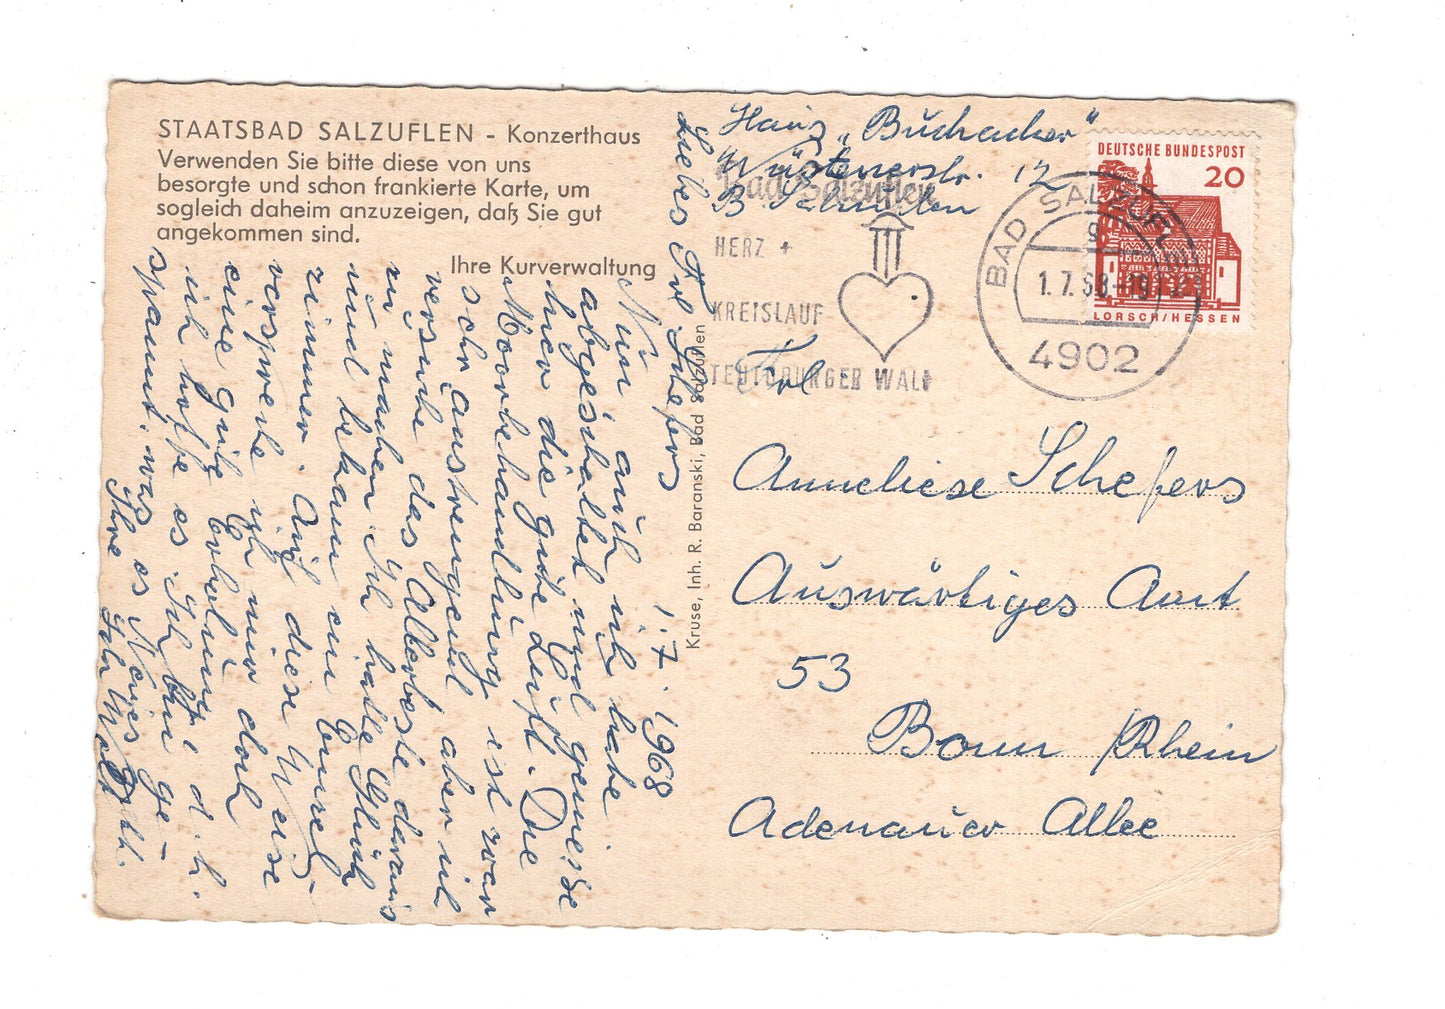 STAATSBAD SALZUFLEN - Konzerthaus
Verwenden Sie bitte diese von uns
besorgte und schon frankierte Karte, um
sogleich daheim anzuzeigen, daß Sie gut
angekommen sind.
Ihre Kurverwaltung
1.7.1968
Liebes Frl. Schefers
Nun auch ich habe
abgeschaltet und geniesse
hier die gute Luft. Die
Moorbehandlung ist zwar
sehr anstrengend aber ich
versuche das Allerbeste daraus
zu machen. Ich hatte Glück
und bekam ein Einzel-
zimmer. Auf diese Weise
verspreche ich mir doch
eine gute Erholung d.h.
ich hoffe es. Ich bin ge-
spannt, was es Neues gibt.
Ihre
Kruse, Inh. R. Baranski, Bad Salzuflen
Haus „Buchacker"
Wüstenerstr. 12
B. Salzuflen
Bad Salzuflen
HERZ +
KREISLAUF
TEUTOBURGER WALD
BAD SALZUFLEN
1.7.68
4902
DEUTSCHE BUNDESPOST
20
LORSCH/HESSEN
Frl
Anneliese Schefers
Auswärtiges Amt
53
Bonn /Rhein
Adenauer Allee